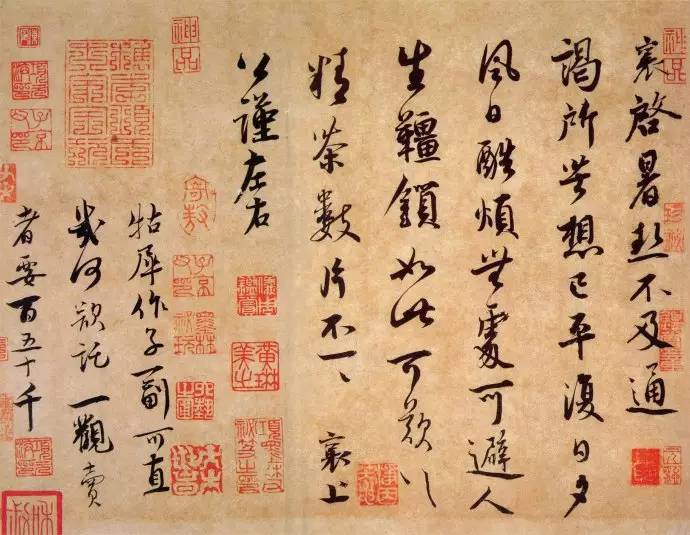 襄啓暑熱不及通
謁所苦想已平復日夕
風日酷煩無處可避人
生韁鎖如此可歎〻
精茶數片不一〻 襄上
公謹左右
牯犀作子一副可直
幾何欲託一觀賣
者要百五十千
神品
神品